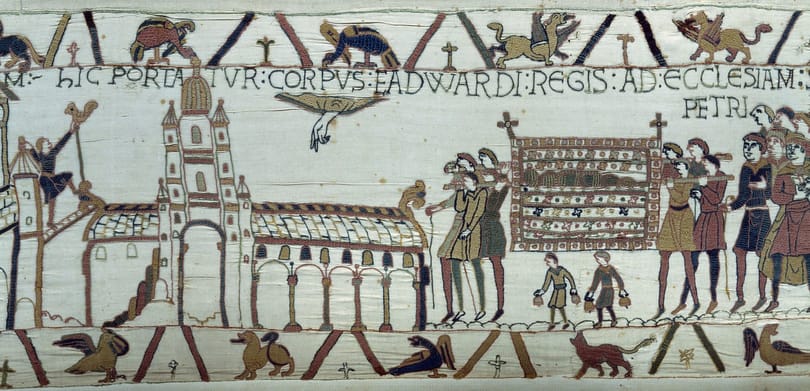 M:- hIC PORTATVR:CORPVS:EADWARDI:REGIS:AD:ECCLESIAM:
PETRI